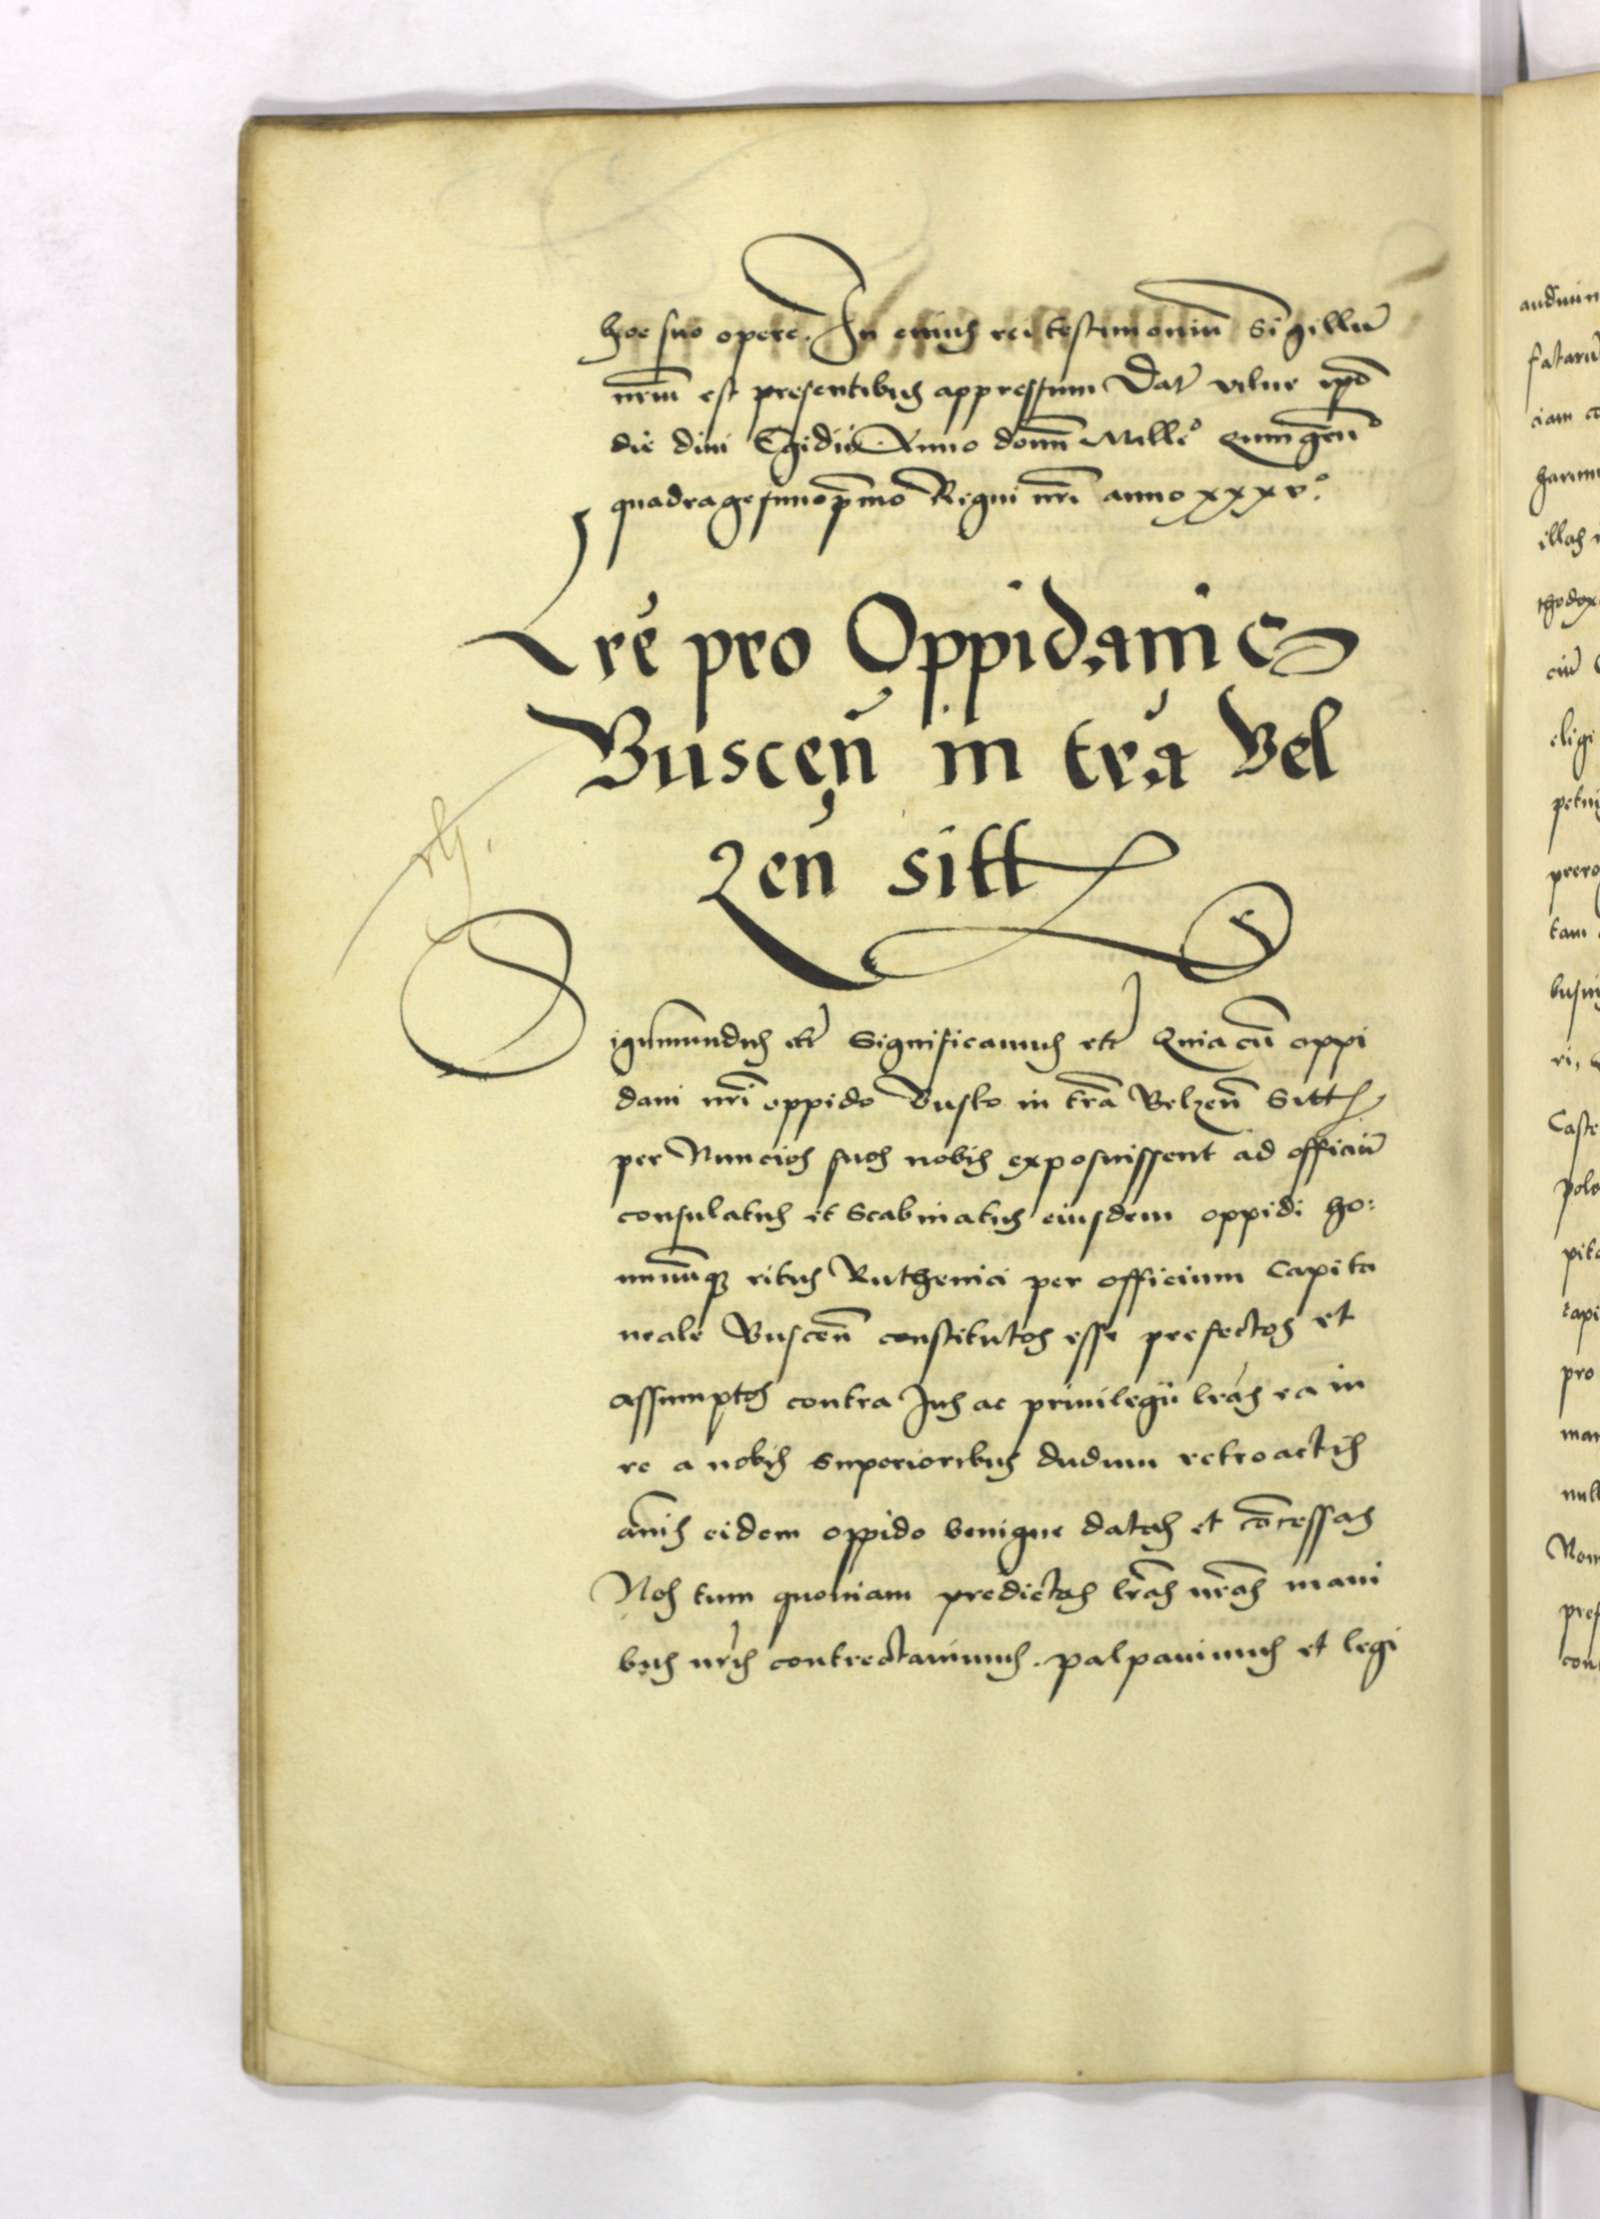 hoc suo opere. In cuius rei testimoniu̅ Sigillu̅
nrm̅ est presentibus appressum Dat̅ vilne ipo̅
die diui Egidii Anno domi̅ Mille̊ Quinge̅nº
quadragesimop̅mo Regni nr̅i anno xxxvº.
Lre̅ pro Oppidanis
Buscen̅ in tr̅a Bel
zen̅ sitt
Sigismundus etc̅ Significamus etc̅ Quia cu̅ oppi
dani nr̅i oppido Busko in tr̅a Belzen̅ Sitt
per Nuncios suos nobis exposuissent ad officiu̅
consulatus et Scabinatus eiusdem oppidi ho:
minu̅q3 ritus Ruthenici per officium Capita
neale Buscen̅ constitutos esse prefectos et
assumptos contra Jus ac priuilegii lr̅as ea in
re a nobis Superioribus dudum retroactis
an̅is eidem oppido benigne datas et co̅cessas
Nos tum quoniam predictas lr̅as nr̅as mani
bus nr̅is contrectauimus. palpauimus et legi